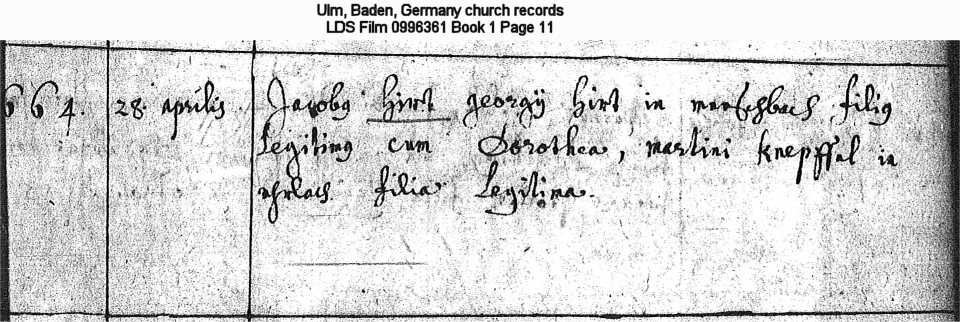 Ulm, Baden, Germany church records
LDS Film 0996361 Book 1 Page 11
664. 28. aprilis Jacobg Hirt georgÿ Hirt in merschbach filig
Legitimg cum Dorothea, martini knepffel in
ahrlach filia Legitima.